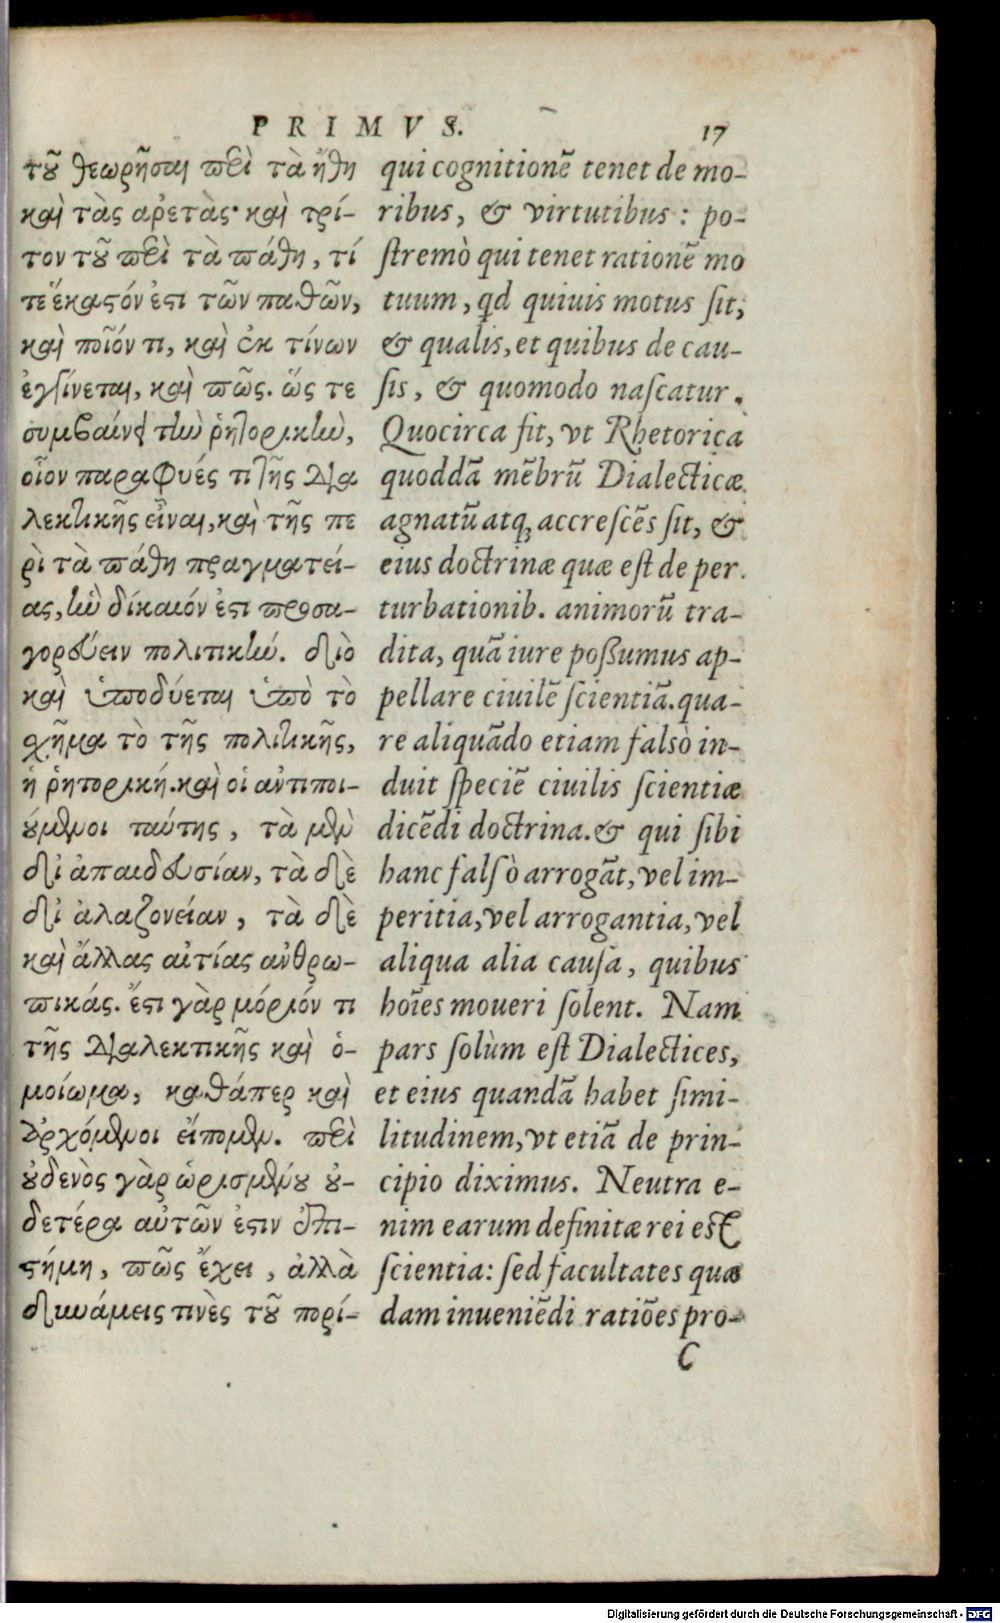 PRIMVS. 17
τοῦ θεωρῆσαι περὶ τὰ ἤθη
καὶ τὰς ἀρετὰς· καὶ τρί-
τον τοῦ περὶ τὰ πάθη, τί
τε ἕκαστόν ἐστι τῶν παθῶν,
καὶ ποῖόν τι, καὶ ἐκ τίνων
ἐγγίνεται, καὶ πῶς. ὥς τε
συμβαίνει τὴν ῥητορικὴν,
οἷον παραφυές τι τῆς δια
λεκτικῆς εἶναι, καὶ τῆς πε
ρὶ τὰ πάθη πραγματεί-
ας, ἣν δίκαιόν ἐστι προσα-
γορεύειν πολιτικήν. διὸ
καὶ ὑποδύεται ὑπὸ τὸ
σχῆμα τὸ τῆς πολιτικῆς,
ἡ ῥητορική. καὶ οἱ ἀντιποι-
ούμενοι ταύτης, τὰ μὲν
δι ἀπαιδευσίαν, τὰ δὲ
δι ἀλαζονείαν, τὰ δὲ
καὶ ἄλλας αἰτίας ἀνθρω-
πικάς. ἔστι γὰρ μόριόν τι
τῆς διαλεκτικῆς καὶ ὁ-
μοίωμα, καθάπερ καὶ
ἀρχόμενοι εἴπομεν. περὶ
οὐδενὸς γὰρ ὡρισμένου οὐ-
δετέρα αὐτῶν ἐστιν ἐπι-
στήμη, πῶς ἔχει, ἀλλὰ
δυνάμεις τινὲς τοῦ πορί-
qui cognitionē tenet de mo-
ribus, & virtutibus: po-
stremò qui tenet rationē mo
tuum, qd quiuis motus sit,
& qualis, et quibus de cau-
sis, & quomodo nascatur.
Quocirca fit, vt Rhetorica
quoddā mēbrū Dialecticæ
agnatū atq; accrescēs sit, &
eius doctrinæ quæ est de per.
turbationib. animorū tra-
dita, quā iure possumus ap-
pellare ciuilē scientiā. qua-
re aliquādo etiam falsò in-
duit speciē ciuilis scientiæ
dicēdi doctrina. & qui sibi
hanc falsò arrogāt, vel im-
peritia, vel arrogantia, vel
aliqua alia causa, quibus
hoīes moueri solent. Nam
pars solùm est Dialectices,
et eius quandā habet simi-
litudinem, vt etiā de prin-
cipio diximus. Neutra e-
nim earum definitæ rei est
scientia: sed facultates quæ
dam inueniēdi ratiōes pro-
C
Digitalisierung gefördert durch die Deutsche Forschungsgemeinschaft - DFG